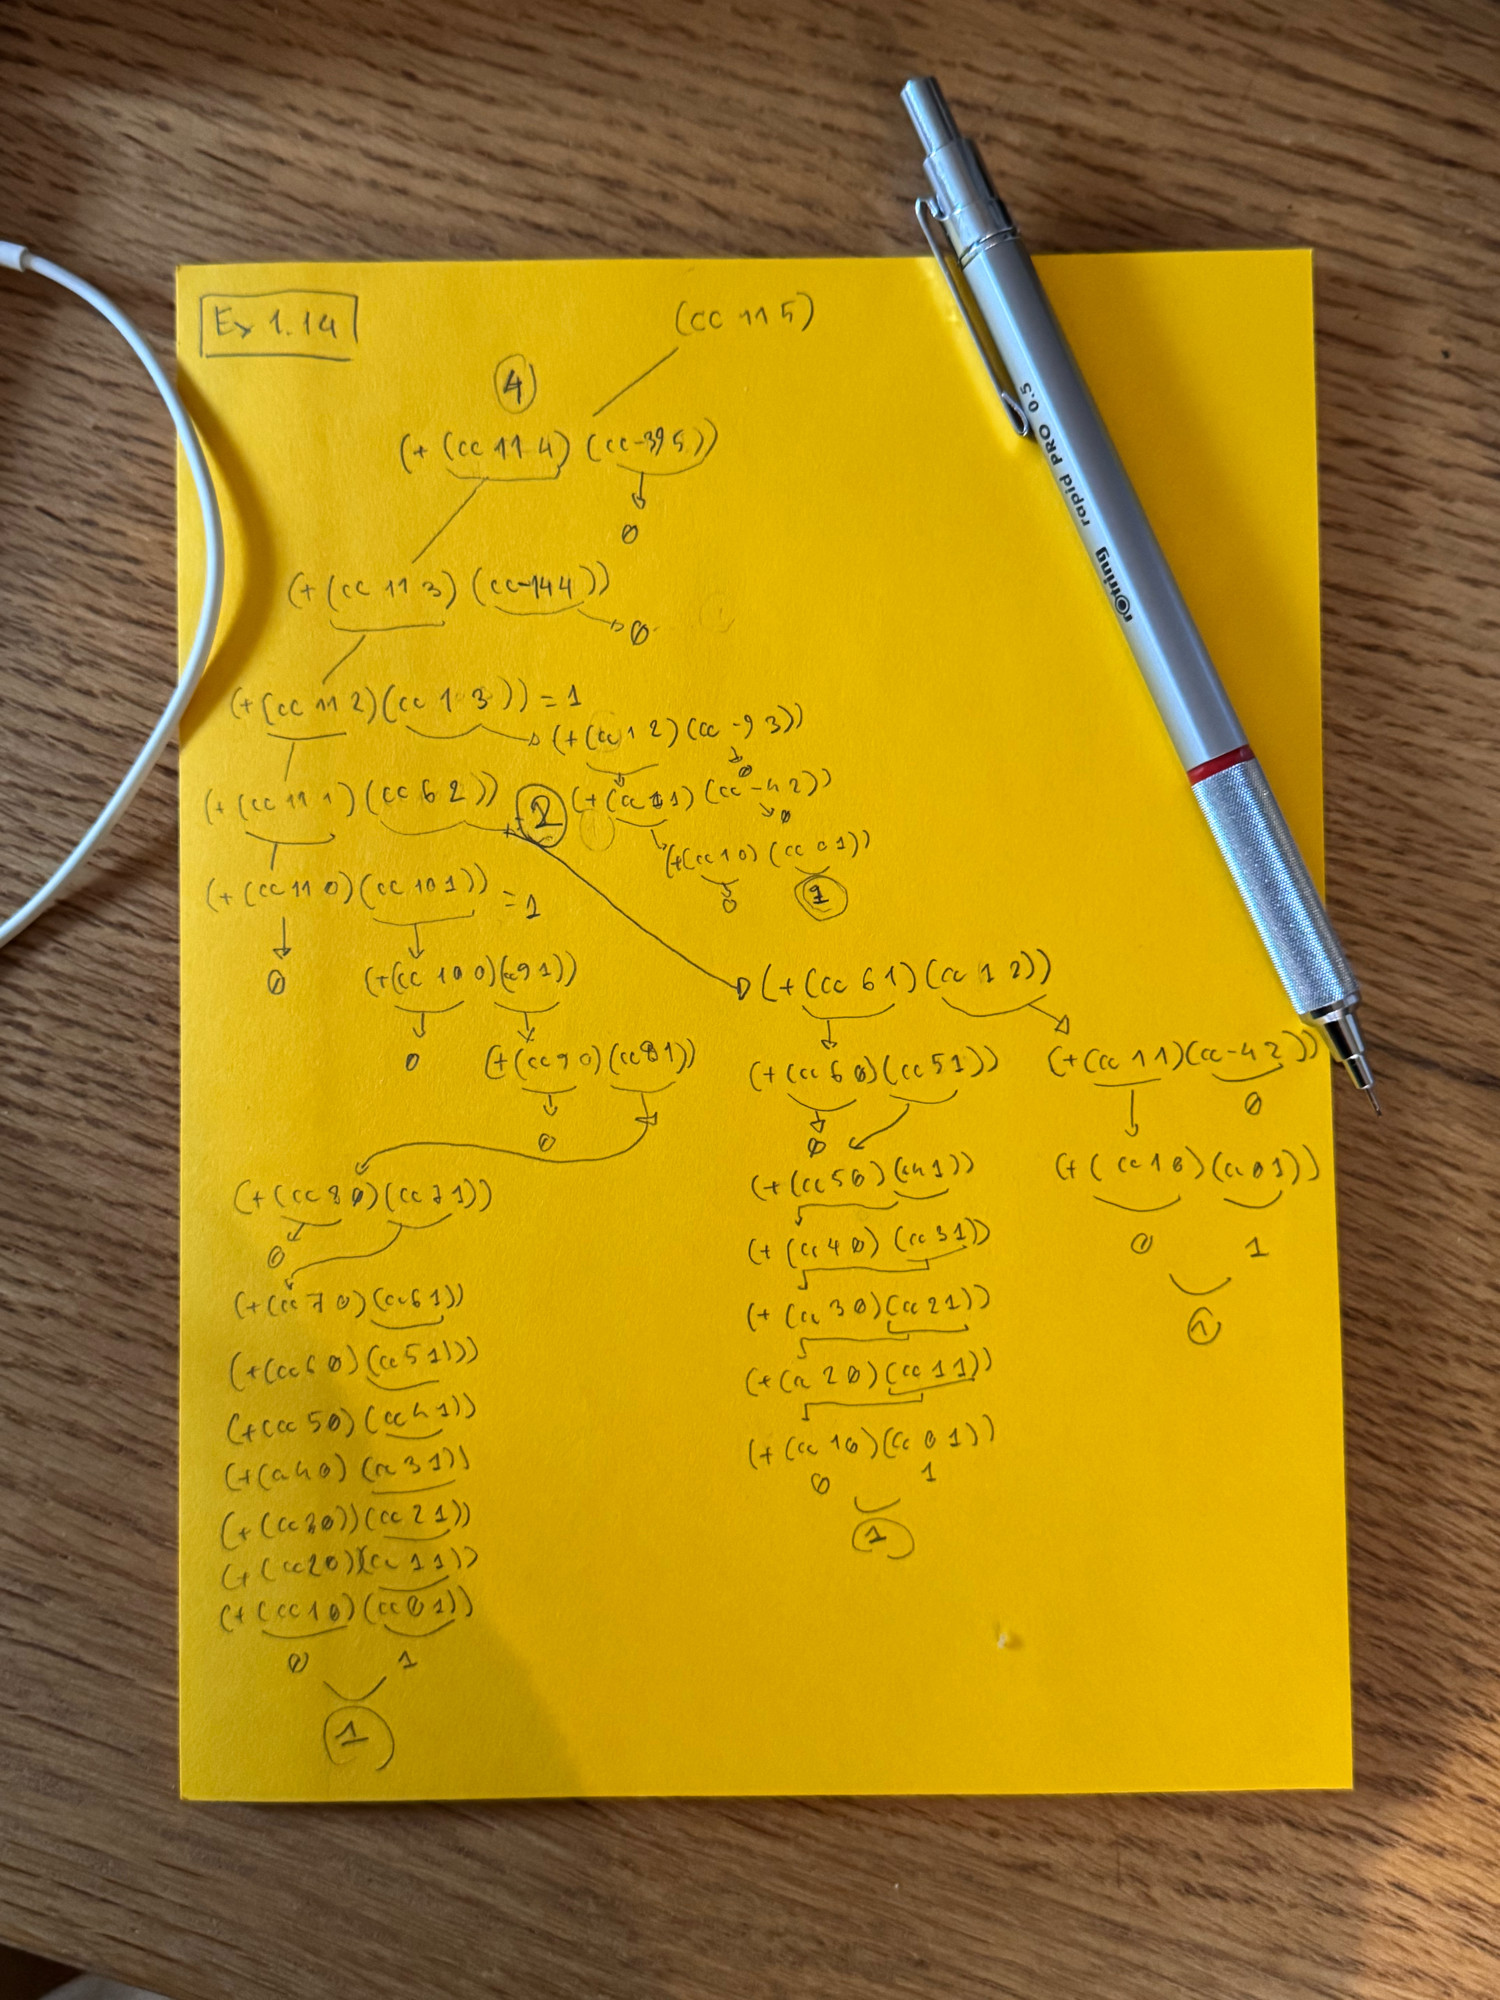 Ex 1.14
(cc 11 5)
4
(+ (cc 11 4) (cc -39 5))
0
(+ (cc 11 3) (cc -14 4))
0
(+ (cc 11 2) (cc 1 3)) = 1
(+ (cc 1 2) (cc -9 3))
0
(+ (cc 11 1) (cc 6 2))
2
(+ (cc 1 1) (cc -4 2))
0
(+ (cc 1 0) (cc 0 1))
0 1
(+ (cc 11 0) (cc 10 1)) = 1
0
(+ (cc 10 0) (cc 9 1))
0
(+ (cc 9 0) (cc 8 1))
0
(+ (cc 8 0) (cc 7 1))
0
(+ (cc 7 0) (cc 6 1))
(+ (cc 6 0) (cc 5 1)))
(+ (cc 5 0) (cc 4 1))
(+ (cc 4 0) (cc 3 1))
(+ (cc 3 0)) (cc 2 1))
(+ (cc 2 0) (cc 1 1))
(+ (cc 1 0) (cc 0 1))
0 1
1
(+ (cc 6 1) (cc 1 2))
(+ (cc 6 0) (cc 5 1))
0
(+ (cc 5 0) (cc 4 1))
(+ (cc 4 0) (cc 3 1))
(+ (cc 3 0) (cc 2 1))
(+ (cc 2 0) (cc 1 1))
(+ (cc 1 0) (cc 0 1))
0 1
1
(+ (cc 1 1) (cc -4 2))
0
(+ (cc 1 0) (cc 0 1))
0 1
1
rotring rapid PRO 0.5